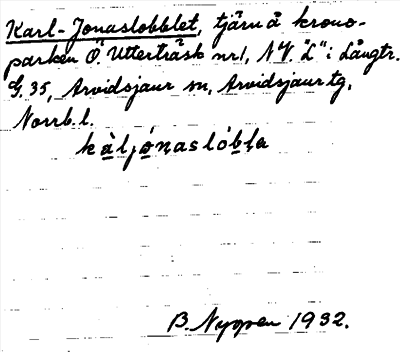 Karl-Jonaslobblet, tjärn å krono-
parken Ö. Utterträsk nr 1, NV. "L" i Långtr.
G. 35, Arvidsjaur sn, Arvidsjaur tg,
Norrb. l.
kàljónaslóbla
B. Nygren 1932.